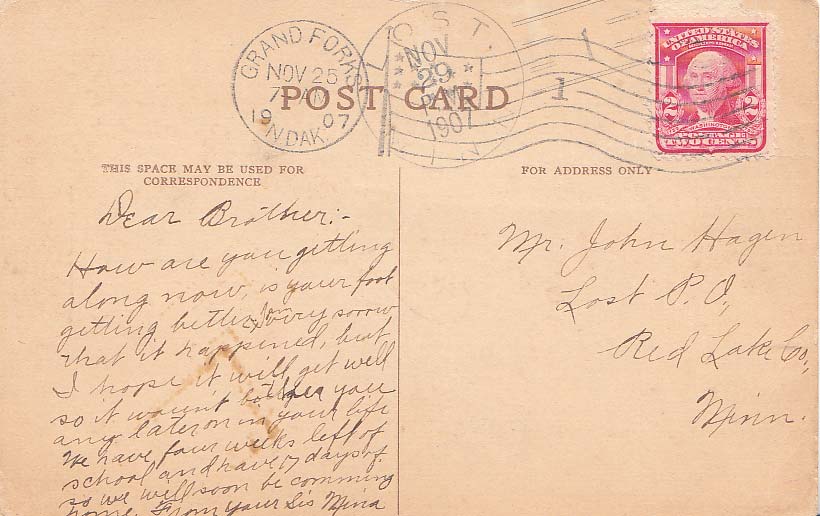 GRAND FORKS
NOV 25
7 AM
19 07
N. DAK.
LOST.
NOV
29
1907
MINN
1
POST CARD
UNITED STATES
OF AMERICA
2 2
WASHINGTON
POSTAGE
TWO CENTS
THIS SPACE MAY BE USED FOR
CORRESPONDENCE
FOR ADDRESS ONLY
Dear Brother:-
How are you getting
along now, is your foot
getting better. Am very sorrow
that it happened, but
I hope it will get well
so it wount bother you
any later on in your life
We have four weeks left of
school and have 7 days of.
so we will soon be comming
home. From your Sis Mina
Mr. John Hagen
Lost P. O.,
Red Lake Co.,
Minn.